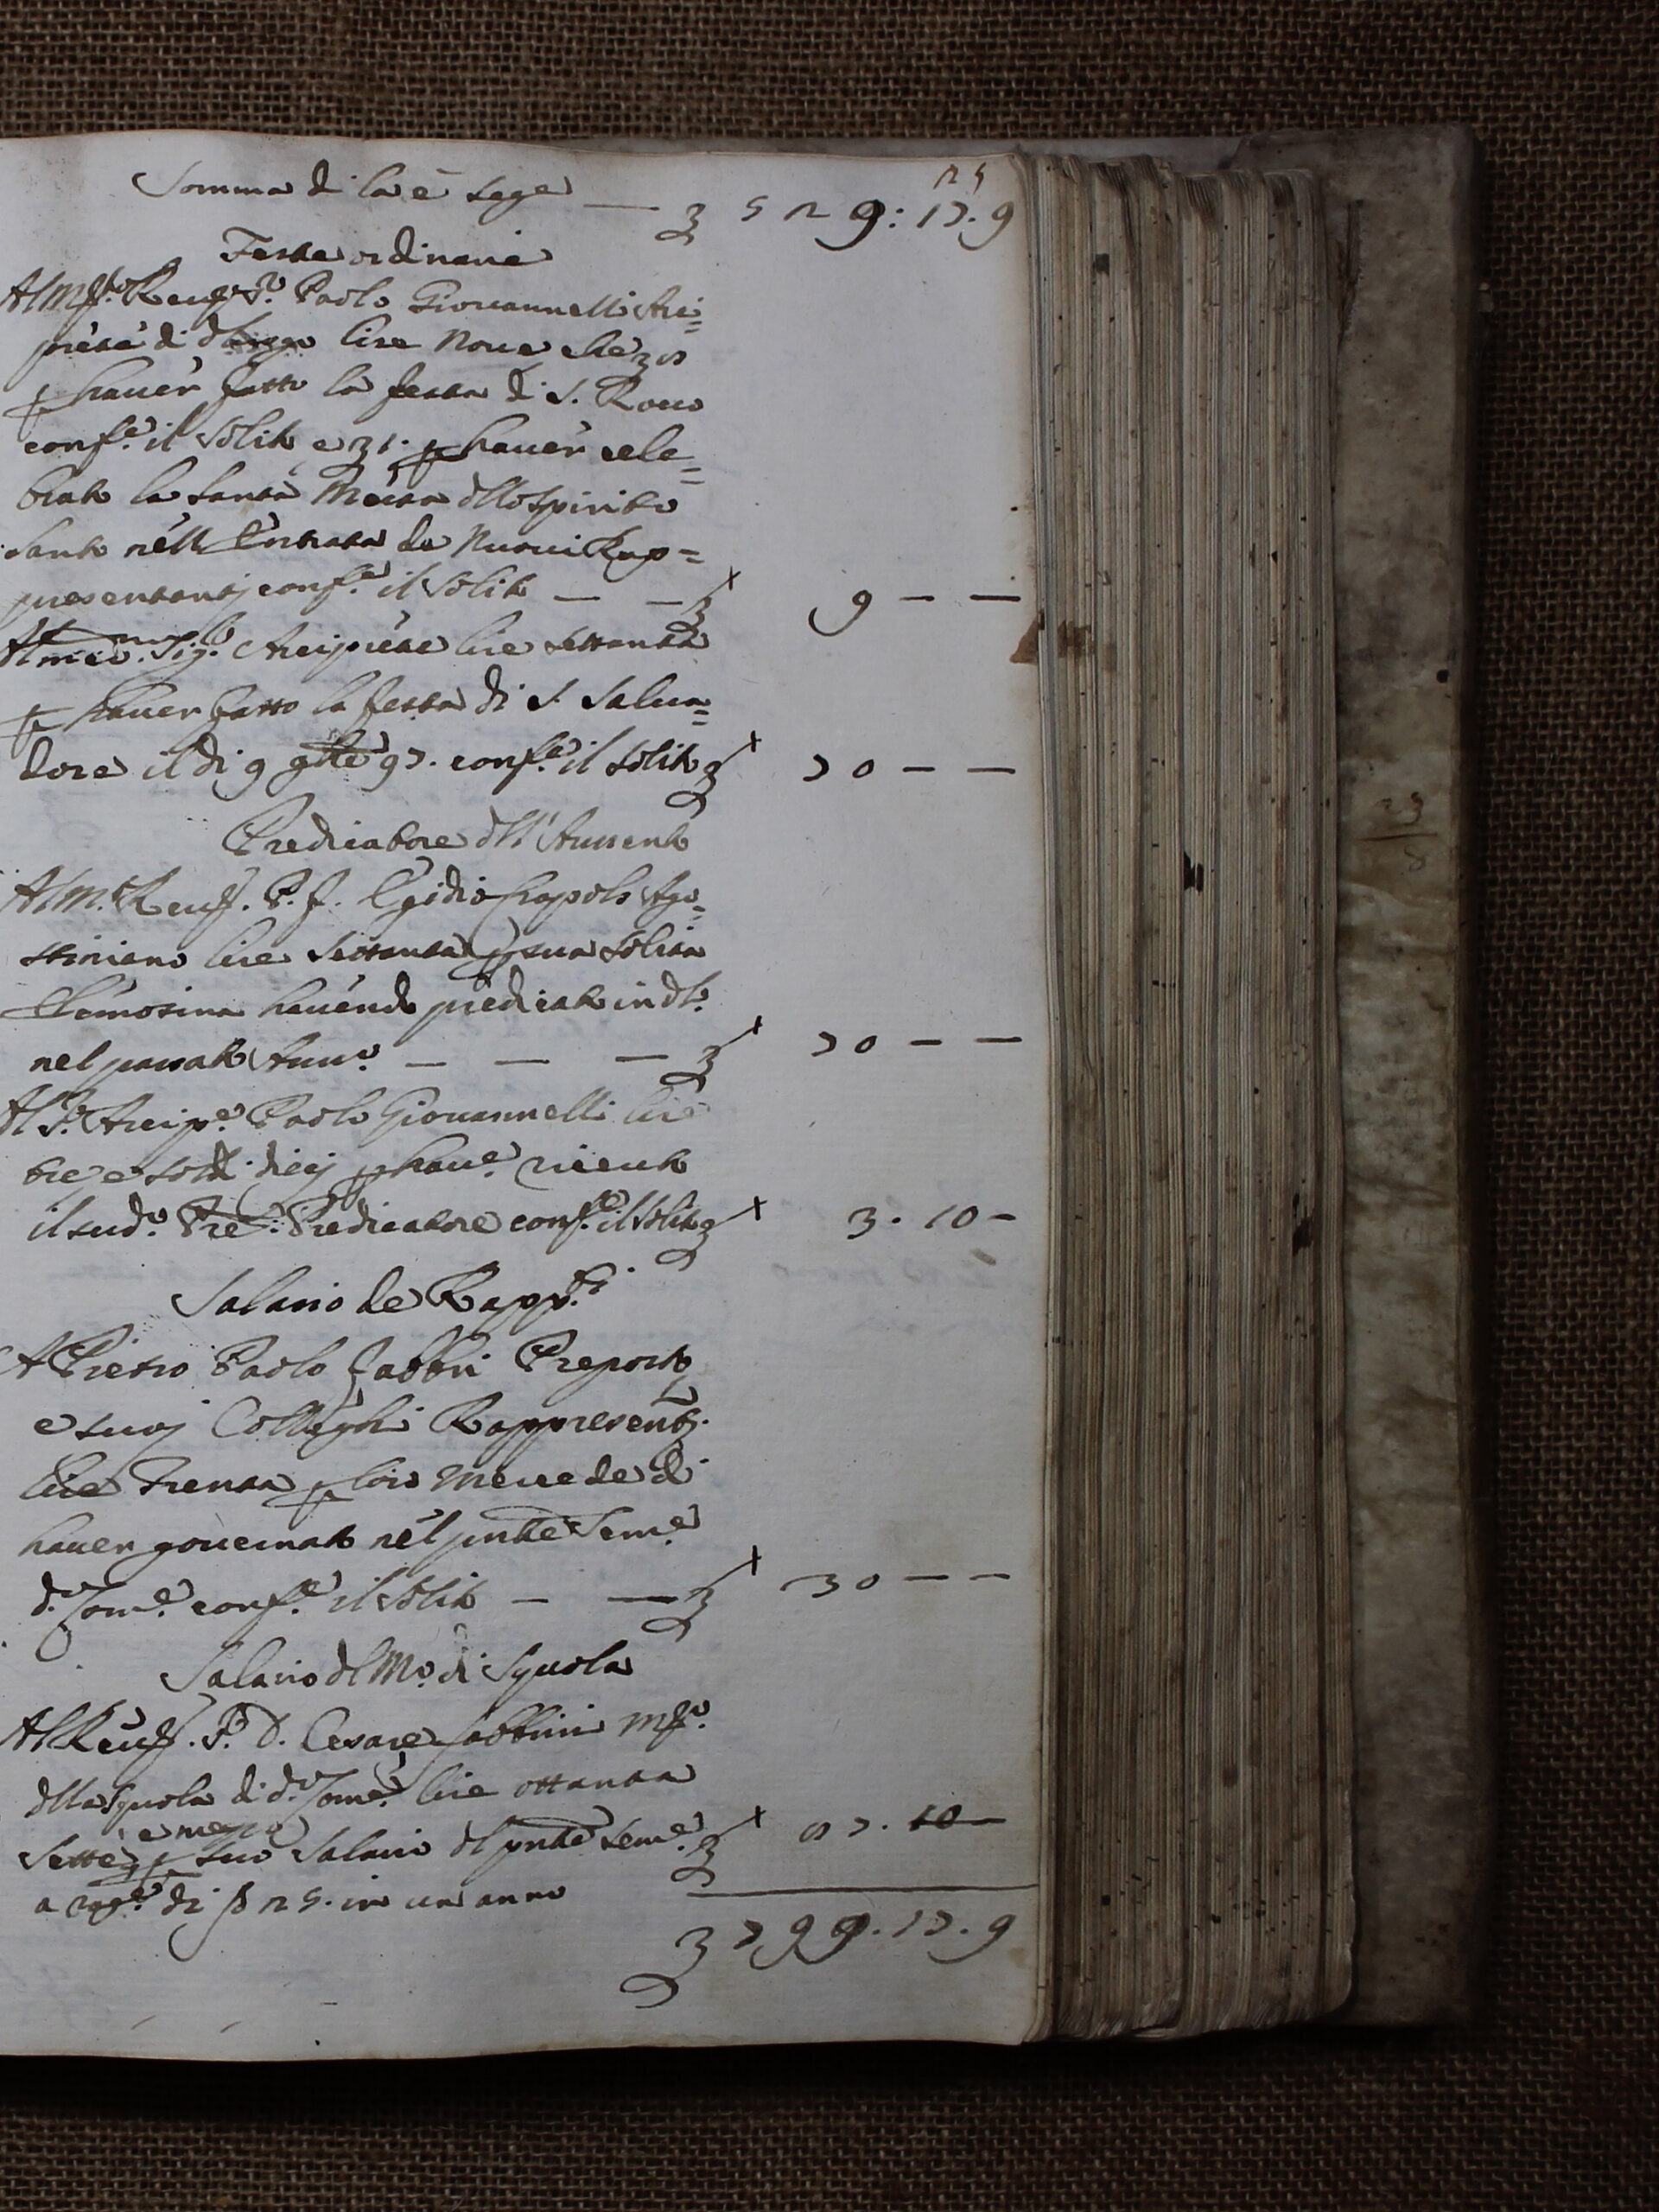 25
Somma di la e segue — £ 529: 17. 9
Feste ordinarie
Al M.to Reu.do S.r Paolo Giouannelli Arci=
prete di d.to lire Noue, che £ 8
p hauer fatto la festa di S. Rocco
conf.e il solito e £ 1. p hauer cele=
brato la santa Messa dello Spirito
Santo nell Entrata de Nuoui Rap=
presentantj conf.e il Solito — — £ 9 — —
Al med.mo Sig.r Arciprete lire settanta
p hauer fatto la festa di S. Salua=
dore il di 9 9bre 97. conf.e il solito £ 70 — —
Predicatore dell' Auuento
Al M. Reu.do P. F. Egidio Ago=
stiniano lire Settanta p sua solita
Elemosina hauendo predicato in d.to
nel passato Auu.to — — — £ 70 — —
Al S.r Arcip.e Paolo Giouannelli lire
tre e soldi diecj p hauer riceuto
il sud.o Pre: Predicatore conf.e il solito £ 3. 10 —
Salario de Rapp.ti
A Pietro Paolo Fabbri Preposto
e suoj Colleghi Rappresentj.
lire Trenta p loro Mercede di
hauer gouernato nel pnte Sem.e
d.a Com.e conf.e il solito — — £ 30 — —
Salario del M.o di Squola
Al Reu.do S. D. Cesare Fabbrini M.ro
della Squola di d.a Com.e lire ottanta
e mezzo
Sette p suo Salario del pnte Sem.e £ 87. 10 —
a rag.e di 25. in un anno
£ 799. 17. 9
23
8